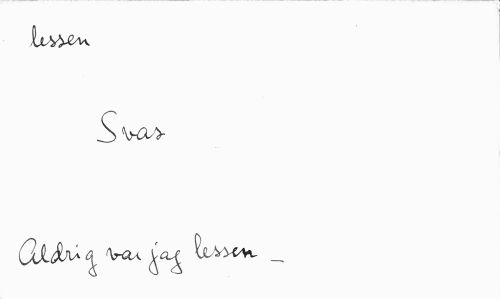 lessen
Svas
Aldrig var jag lessen _